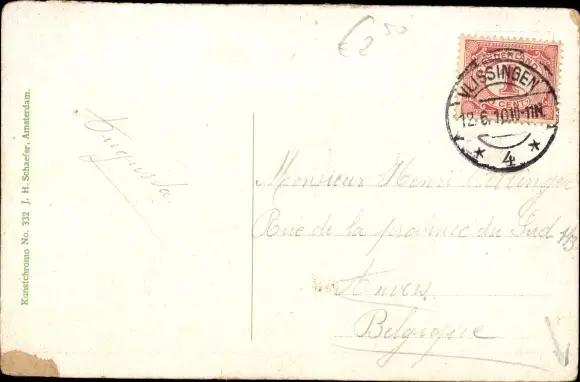 € 2 50
NEDERLAND
1
CENT
VLISSINGEN
12.6.10 10-11N.
* 4 *
Kunstchromo No. 332 J. H. Schaefer, Amsterdam.
Augusta
Monsieur Henri
Rue de la province du Sud
Anvers
Belgique